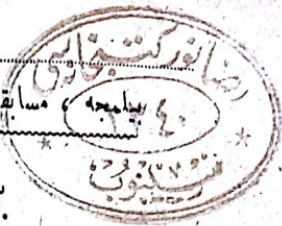 رضا نور كتبخانه سی
بیلمجه ، مسابقه
سینوب